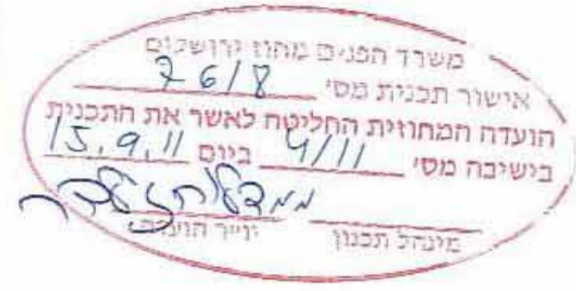 משרד הפנים מחוז ירושלים
אישור תכנית מס' 7618
הועדה המחוזית החליטה לאשר את התכנית
בישיבה מס' 9/11 ביום 15.9.11
מינהל תכנון יו"ר הועדה